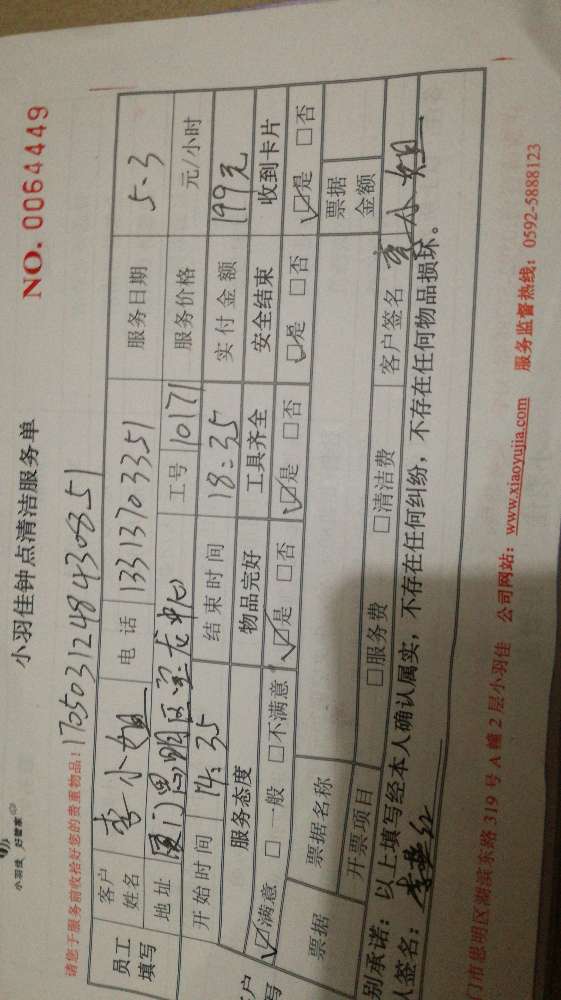 小羽佳 好管家
小羽佳钟点清洁服务单
NO. 0064449
请您于服务前收拾好您的贵重物品! 170503124843085 1
员工填写 客户姓名 李小姐 电话 13313703351 服务日期 5.3
地址 厦门思明区宝龙中心 工号 10171 服务价格 元/小时
开始时间 14:35 结束时间 18:35 实付金额 199元
服务态度 物品完好 工具齐全 安全结束 收到卡片
☑满意 □一般 □不满意 ☑是 □否 ☑是 □否 ☑是 □否 ☑是 □否
票据 票据名称 票据金额
开票项目 □服务费 □清洁费 客户签名 李小姐
别承诺:以上填写经本人确认属实,不存在任何纠纷,不存在任何物品损坏。
签名:李
门市思明区湖滨东路 319 号 A 幢 2 层小羽佳 公司网站:www.xiaoyujia.com 服务监督热线:0592-5888123